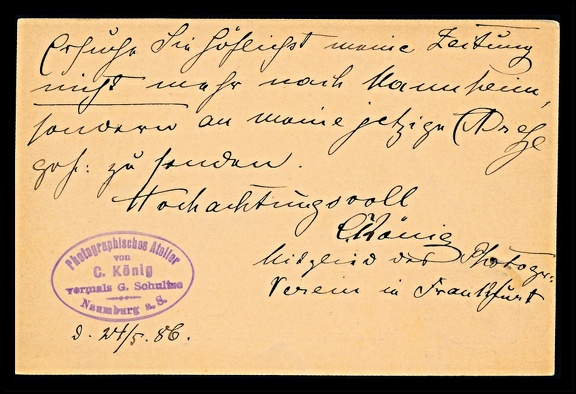 Ersuche Sie höflichst meine Zeitung
nicht mehr nach Mannheim,
sondern an meine jetzige Adresse
gef: zu senden.
Hochachtungsvoll
C. König
Mitglied des Photogr:
Verein in Frankfurt
Photographisches Atelier
von
C. König
vormals G. Schultze
Naumburg a. S.
d. 24/5. 86.